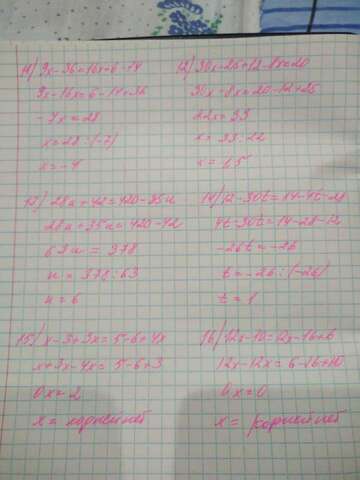 11) 9x-36=16x+6-14
9x-16x=6-14+36
-7x=28
x=28:(-7)
x=-4
12) 30x-25+12-8x=20
30x-8x=20-12+25
22x=33
x=33:22
x=1,5
13) 28u+42=420-35u
28u+35u=420-42
63u=378
u=378:63
u=6
14) 12-30t=14-4t-28
4t-30t=14-28-12
-26t=-26
t=-26:(-26)
t=1
15) x-3+3x=5-6+4x
x+3x-4x=5-6+3
0x=2
x= корней нет
16) 12x-10=12x-16+6
12x-12x=6-16+10
0x=0
x= корней нет